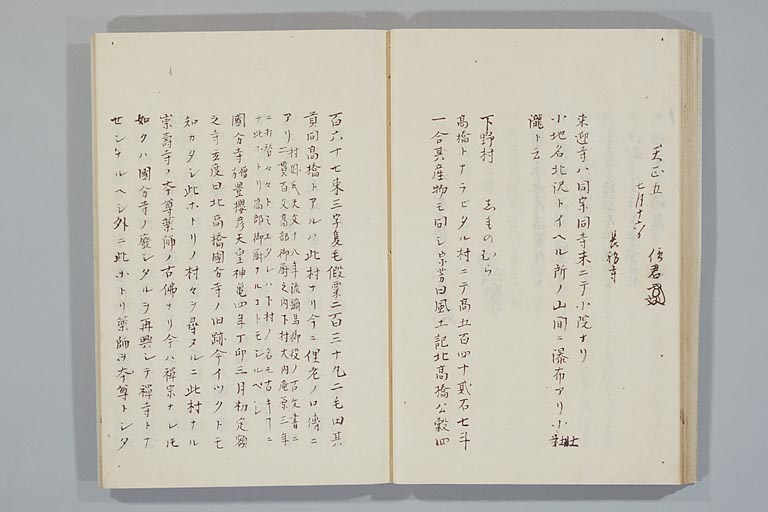 天正五
七月十六日　信君
長福寺
来迎寺ハ同宗同寺末ニテ小院ナリ
小地名北沢トイヘル所ノ山間ニ瀑布アリ小
瀧ト云
下野村　志ものむら
高橋トナラビタル村ニテ高五百四十貳石七斗
一合其産物モ同シ宗芳曰風土記北高橋公穀四
百六十七束三字隻毛假粟二百三十九二毛四其
貢同高橋トアルハ此村ナリ今ニ俚老ノ口傳ニ
アリ
國分寺豊櫻彦天皇神亀四年丁卯三月初定額
之寺云度曰北高橋國分寺ノ旧跡今イツクトモ
知カタシ此ホトリノ村々ヲ尋ヌルニ此村ナル
崇壽寺ノ本尊薬師ノ古佛ナリ今ハ禪宗ナレモ
如クハ國分寺ノ廢シタルヲ再興シテ禪寺トナ
センケルヘシ外ニ此ホトリ薬師ヲ本尊トシタ